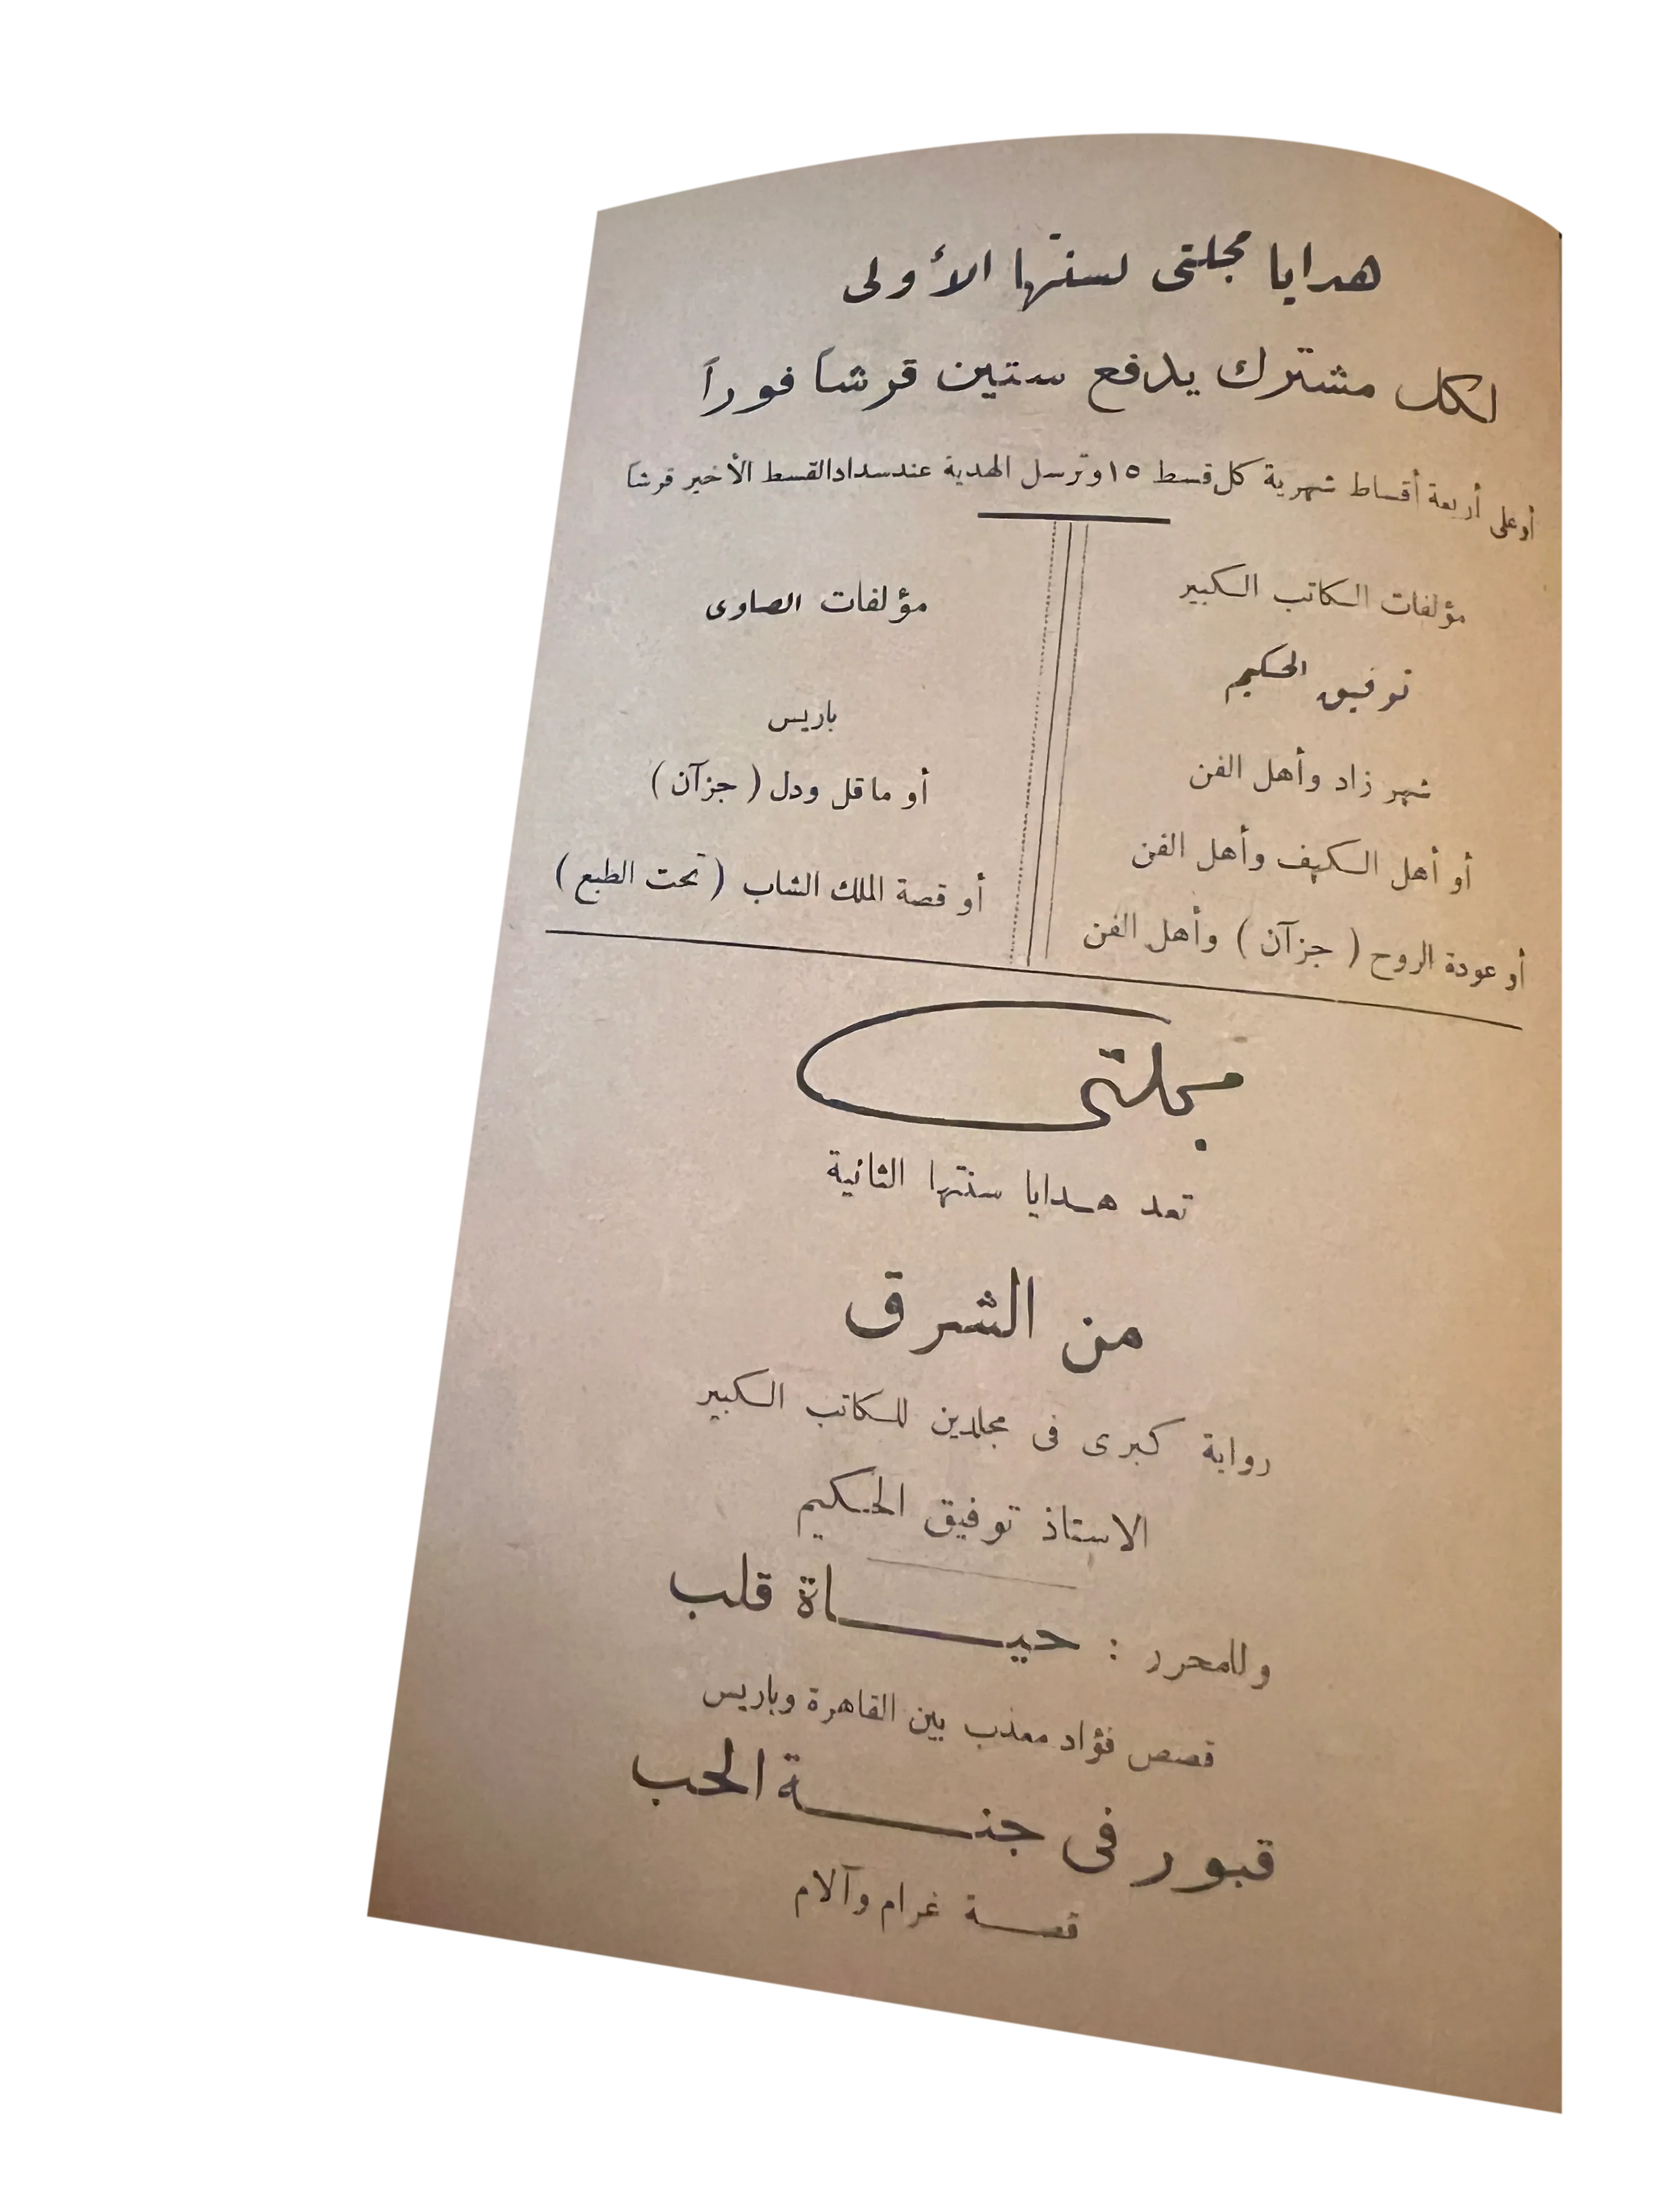 هدايا مجلتى لسنتها الأولى
لكل مشترك يدفع ستين قرشاً فوراً
أو على أربعة أقساط شهرية كل قسط ١٥ وترسل الهدية عند سداد القسط الأخير قرشاً
مؤلفات الكاتب الكبير
توفيق الحكيم
شهر زاد وأهل الفن
أو أهل الكهف وأهل الفن
أو عودة الروح ( جزآن ) وأهل الفن
مؤلفات الصاوى
باريس
أو ما قل ودل ( جزآن )
أو قصة الملك الشاب ( تحت الطبع )
مجلتى
تعد هدايا سنتها الثانية
من الشرق
رواية كبرى فى مجلدين للكاتب الكبير
الاستاذ توفيق الحكيم
وللمحرر : حيـــاة قلب
قصص فؤاد معذب بين القاهرة وباريس
قبور فى جنـــة الحب
قصـة غرام وآلام